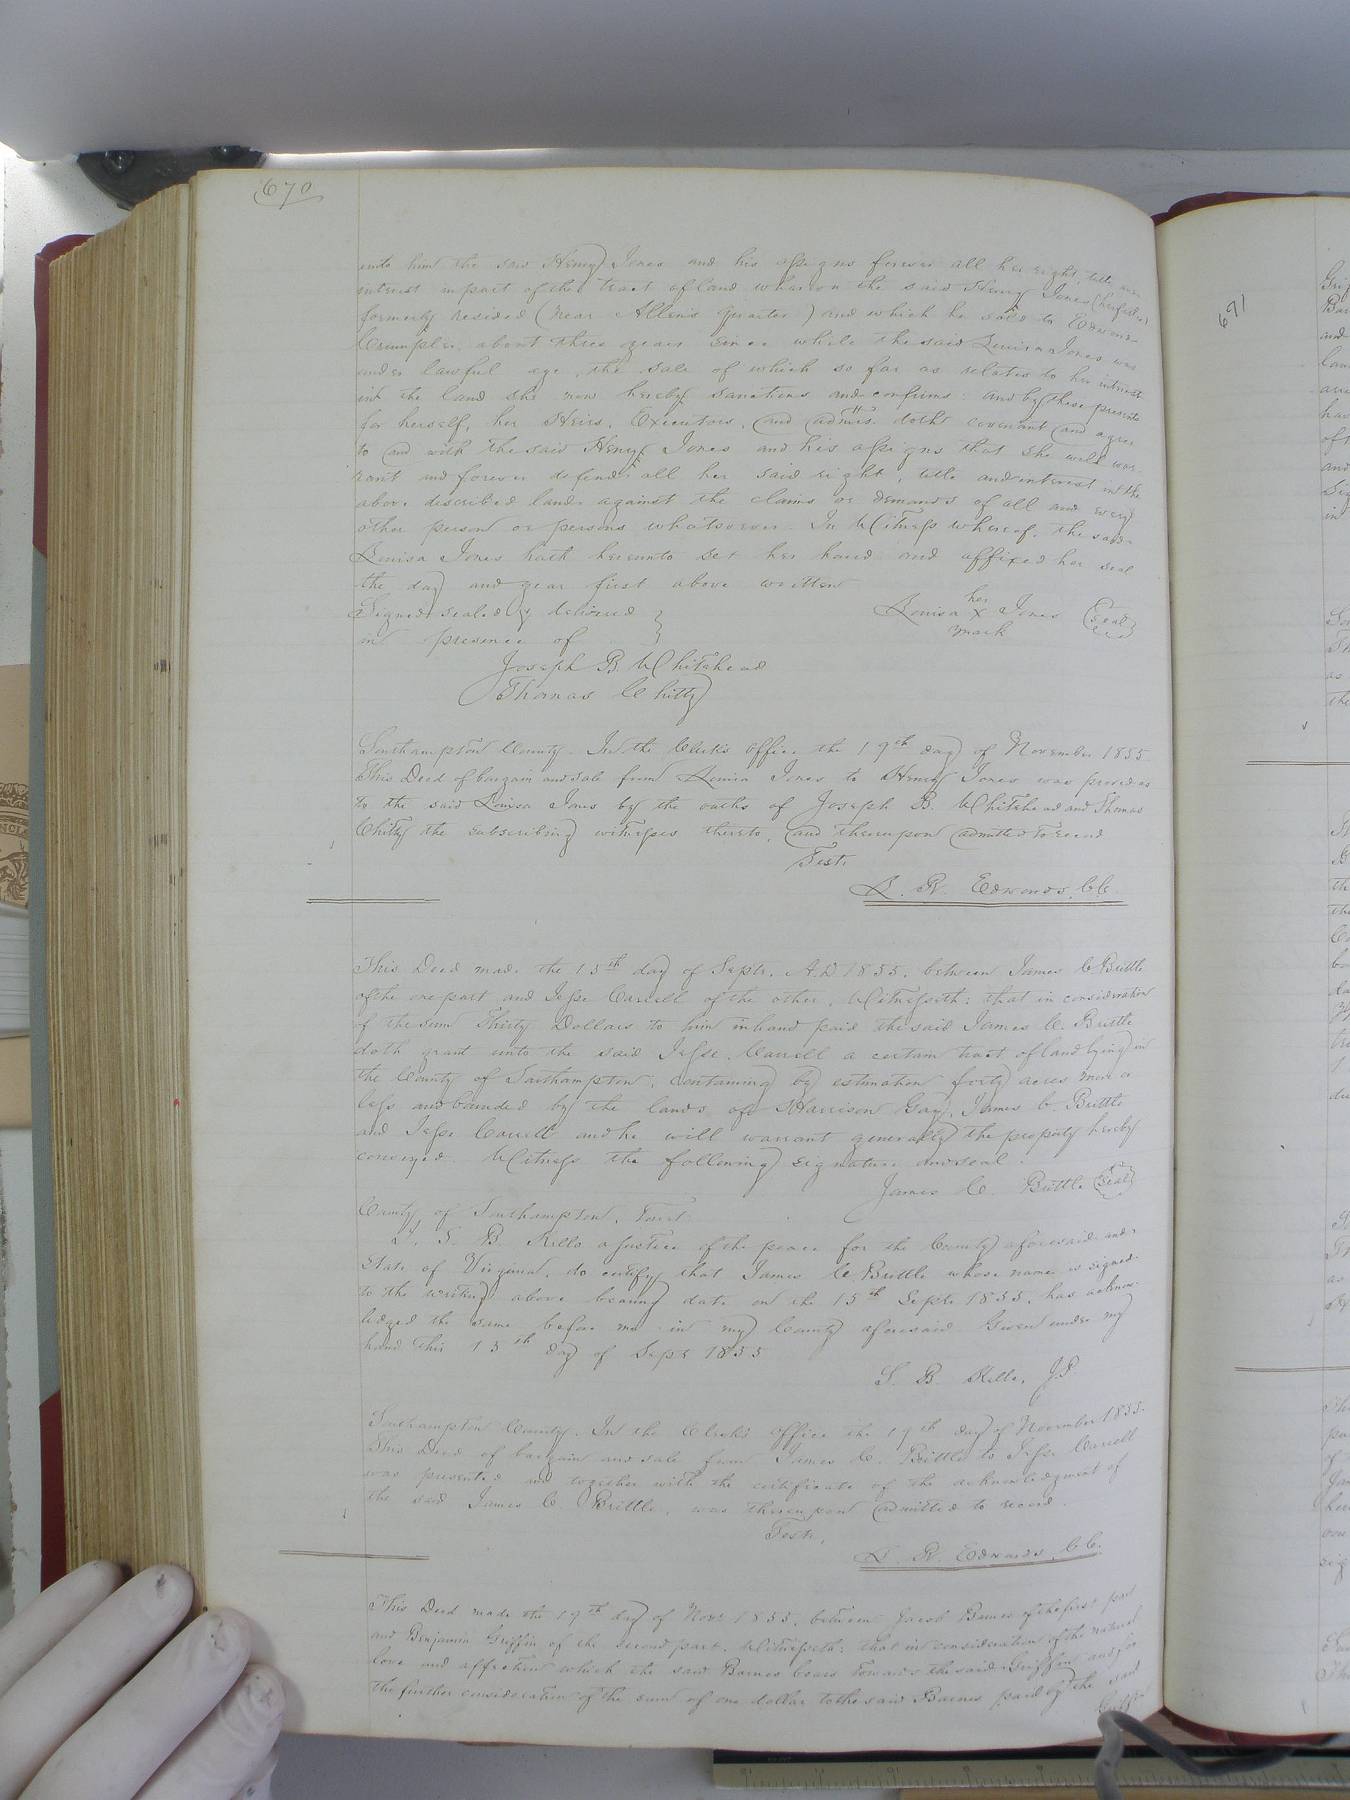 670
unto him the said Henry Jones and his assigns forever all her right, title and
interest in part of the tract of land whereon the said Henry Jones (her father)
formerly resided (near Allen's quarter) and which he sold to Edwin
Crumpler, about three years since while the said Louisa Jones was
under lawful age, the sale of which so far as relates to her interest
in the land she now hereby sanctions and confirms: and by these presents
for herself, her Heirs, Executors, and admrs. doth covenant and agree
to and with the said Henry Jones and his assigns that she will war-
rant and forever defend all her said right, title and interest in the
above described land against the claims or demands of all and every
other person or persons whatsoever. In Witness whereof, the said
Louisa Jones hath hereunto set her hand and affixed her seal
the day and year first above written
Signed sealed & delivered
in presence of
her
Louisa X Jones Seal
mark
Joseph B. Whitehead
Thomas Chitty
Southampton County. In the Clerk's Office the 19th day of November 1855
This Deed of bargain and sale from Louisa Jones to Henry Jones was proved as
to the said Louisa Jones by the oaths of Joseph B. Whitehead and Thomas
Chitty the subscribing witnesses thereto, and thereupon admitted to record
Teste,
L. R. Edwards, C.C.
This Deed made the 15th day of Septr. A.D 1855, between James C. Brittle
of the one part and Jesse Carrell of the other, Witnesseth: that in consideration
of the sum Thirty Dollars to him in hand paid the said James C. Brittle
doth grant unto the said Jesse Carrell a certain tract of land lying in
the County of Southampton, containing by estimation forty acres more or
less and bounded by the lands of Harrison Gay, James C. Brittle
and Jesse Carrell and he will warrant generally the property hereby
conveyed. Witness the following signature and seal.
James C. Brittle Seal
County of Southampton, To wit:
I, S. B. Kello a Justice of the peace for the County aforesaid and
State of Virginia, do certify that James C. Brittle whose name is signed
to the writing above bearing date on the 15th Septr 1855, has acknow-
ledged the same before me in my County aforesaid Given under my
hand this 15th day of Septr 1855
S. B. Kello, J.P.
Southampton County. In the Clerk's Office the 19th day of November 1855.
This Deed of bargain and sale from James C. Brittle to Jesse Carrell
was presented and together with the certificate of the acknowledgment of
the said James C. Brittle, was thereupon admitted to record
Teste,
L. R. Edwards, C.C.
This Deed made the 19th day of Novr 1855, between Jacob Barnes of the first part
and Benjamin Griffin of the second part, Witnesseth: that in consideration of the natural
love and affection which the said Barnes bears towards the said Griffin, and for
the further consideration of the sum of one dollar to the said Barnes paid by the said
Griffin
691